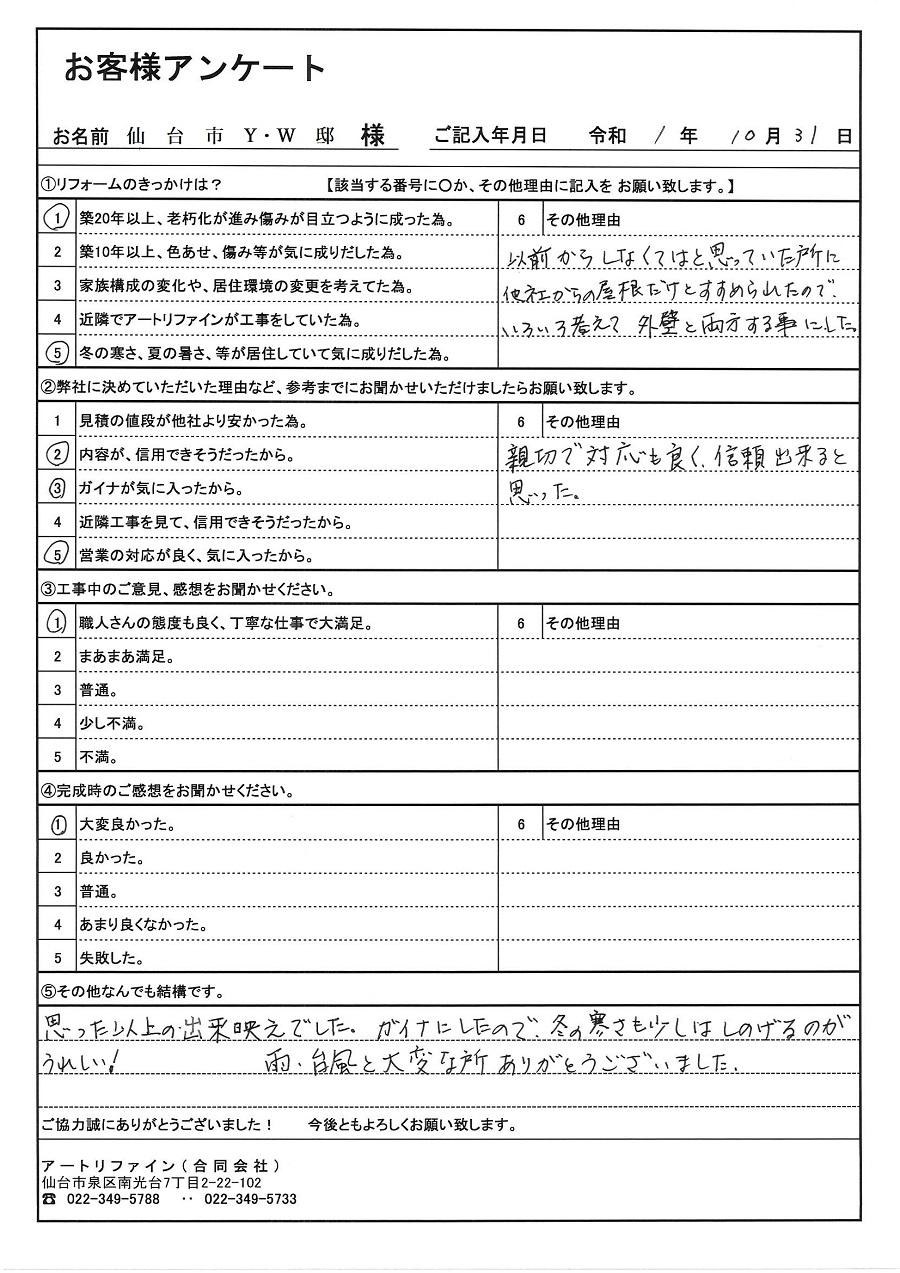 お客様アンケート
お名前 仙台市 Y・W 邸 様 ご記入年月日 令和 1 年 10 月 31 日
①リフォームのきっかけは？ 【該当する番号に〇か、その他理由に記入を お願い致します。】
1 築20年以上、老朽化が進み傷みが目立つように成った為。 6 その他理由
2 築10年以上、色あせ、傷み等が気に成りだした為。 以前からしなくてはと思っていた所に
3 家族構成の変化や、居住環境の変更を考えてた為。 他社からの屋根だけとすすめられたので、
4 近隣でアートリファインが工事をしていた為。 いろいろ考えて 外壁と両方する事にした。
5 冬の寒さ、夏の暑さ、等が居住していて気に成りだした為。
②弊社に決めていただいた理由など、参考までにお聞かせいただけましたらお願い致します。
1 見積の値段が他社より安かった為。 6 その他理由
2 内容が、信用できそうだったから。 親切で対応も良く、信頼出来ると
3 ガイナが気に入ったから。 思った。
4 近隣工事を見て、信用できそうだったから。
5 営業の対応が良く、気に入ったから。
③工事中のご意見、感想をお聞かせください。
1 職人さんの態度も良く、丁寧な仕事で大満足。 6 その他理由
2 まあまあ満足。
3 普通。
4 少し不満。
5 不満。
④完成時のご感想をお聞かせください。
1 大変良かった。 6 その他理由
2 良かった。
3 普通。
4 あまり良くなかった。
5 失敗した。
⑤その他なんでも結構です。
思った以上の出来映えでした。 ガイナにしたので、冬の寒さも少しはしのげるのが
うれしい! 雨・台風と大変な所ありがとうございました。
ご協力誠にありがとうございました！ 今後ともよろしくお願い致します。
アートリファイン(合同会社)
仙台市泉区南光台7丁目2-22-102
☎ 022-349-5788 ‥ 022-349-5733